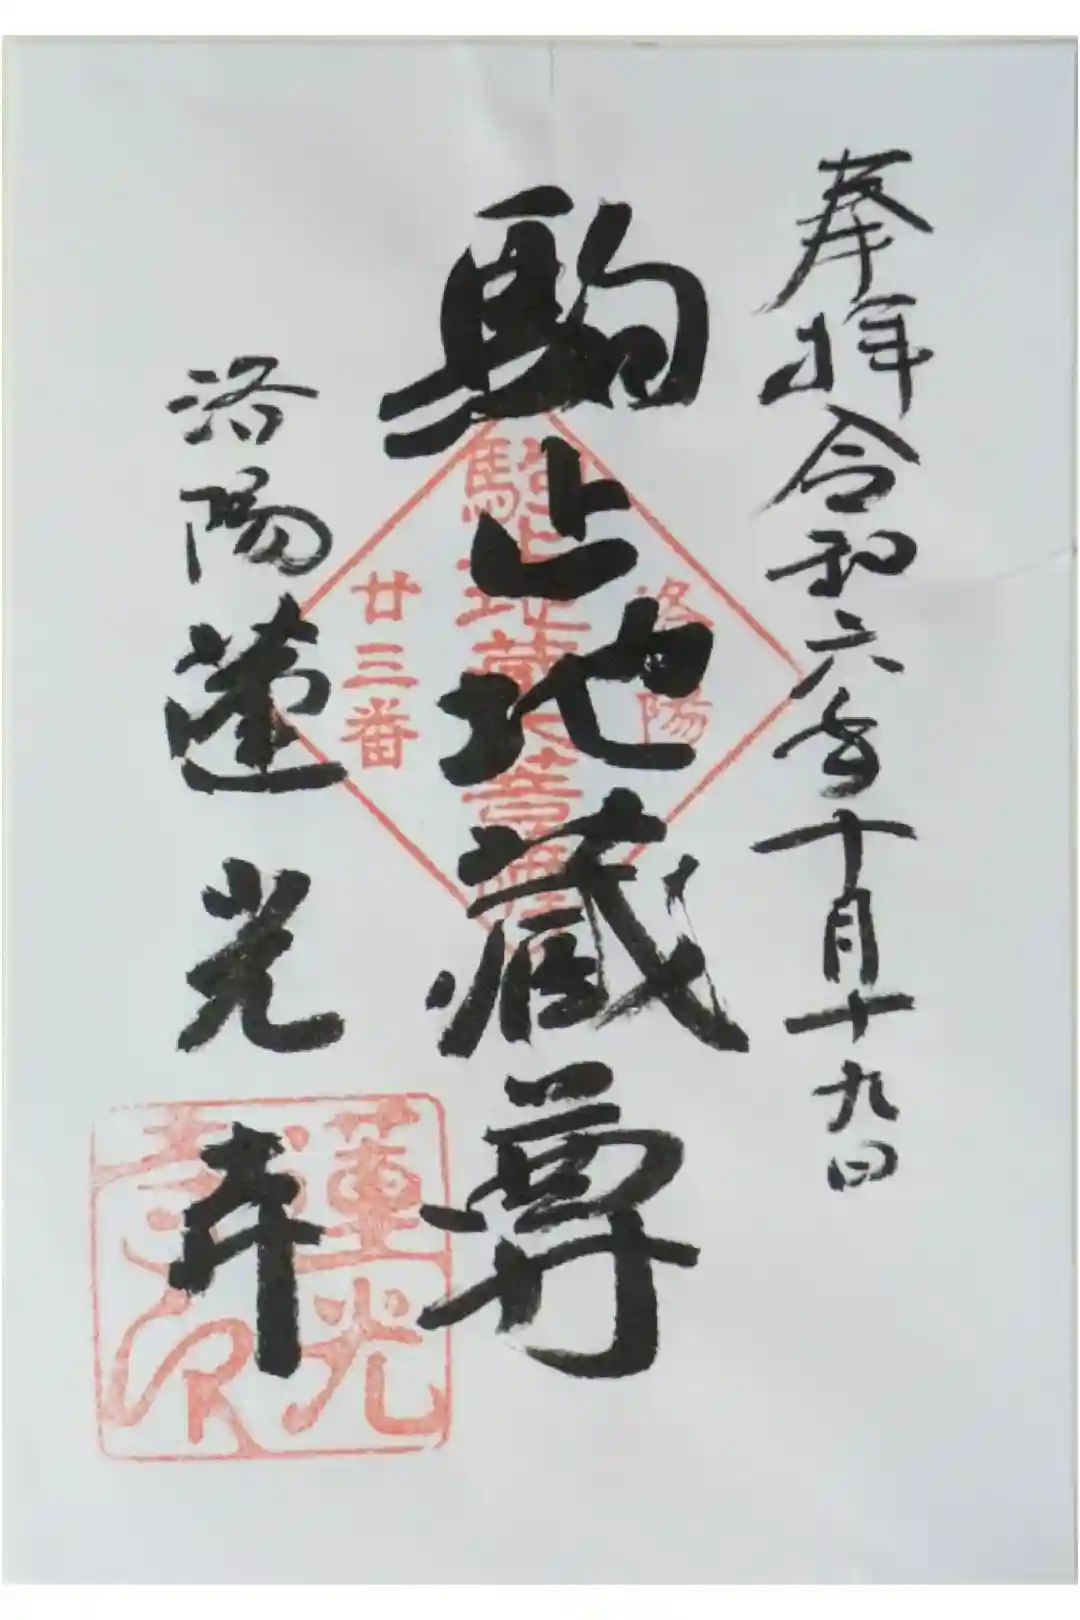 奉拝 令和六年十月十九日
駒止地蔵尊
洛陽 蓮光寺
洛陽
駒止地蔵菩薩
廿三番
蓮光
寺印